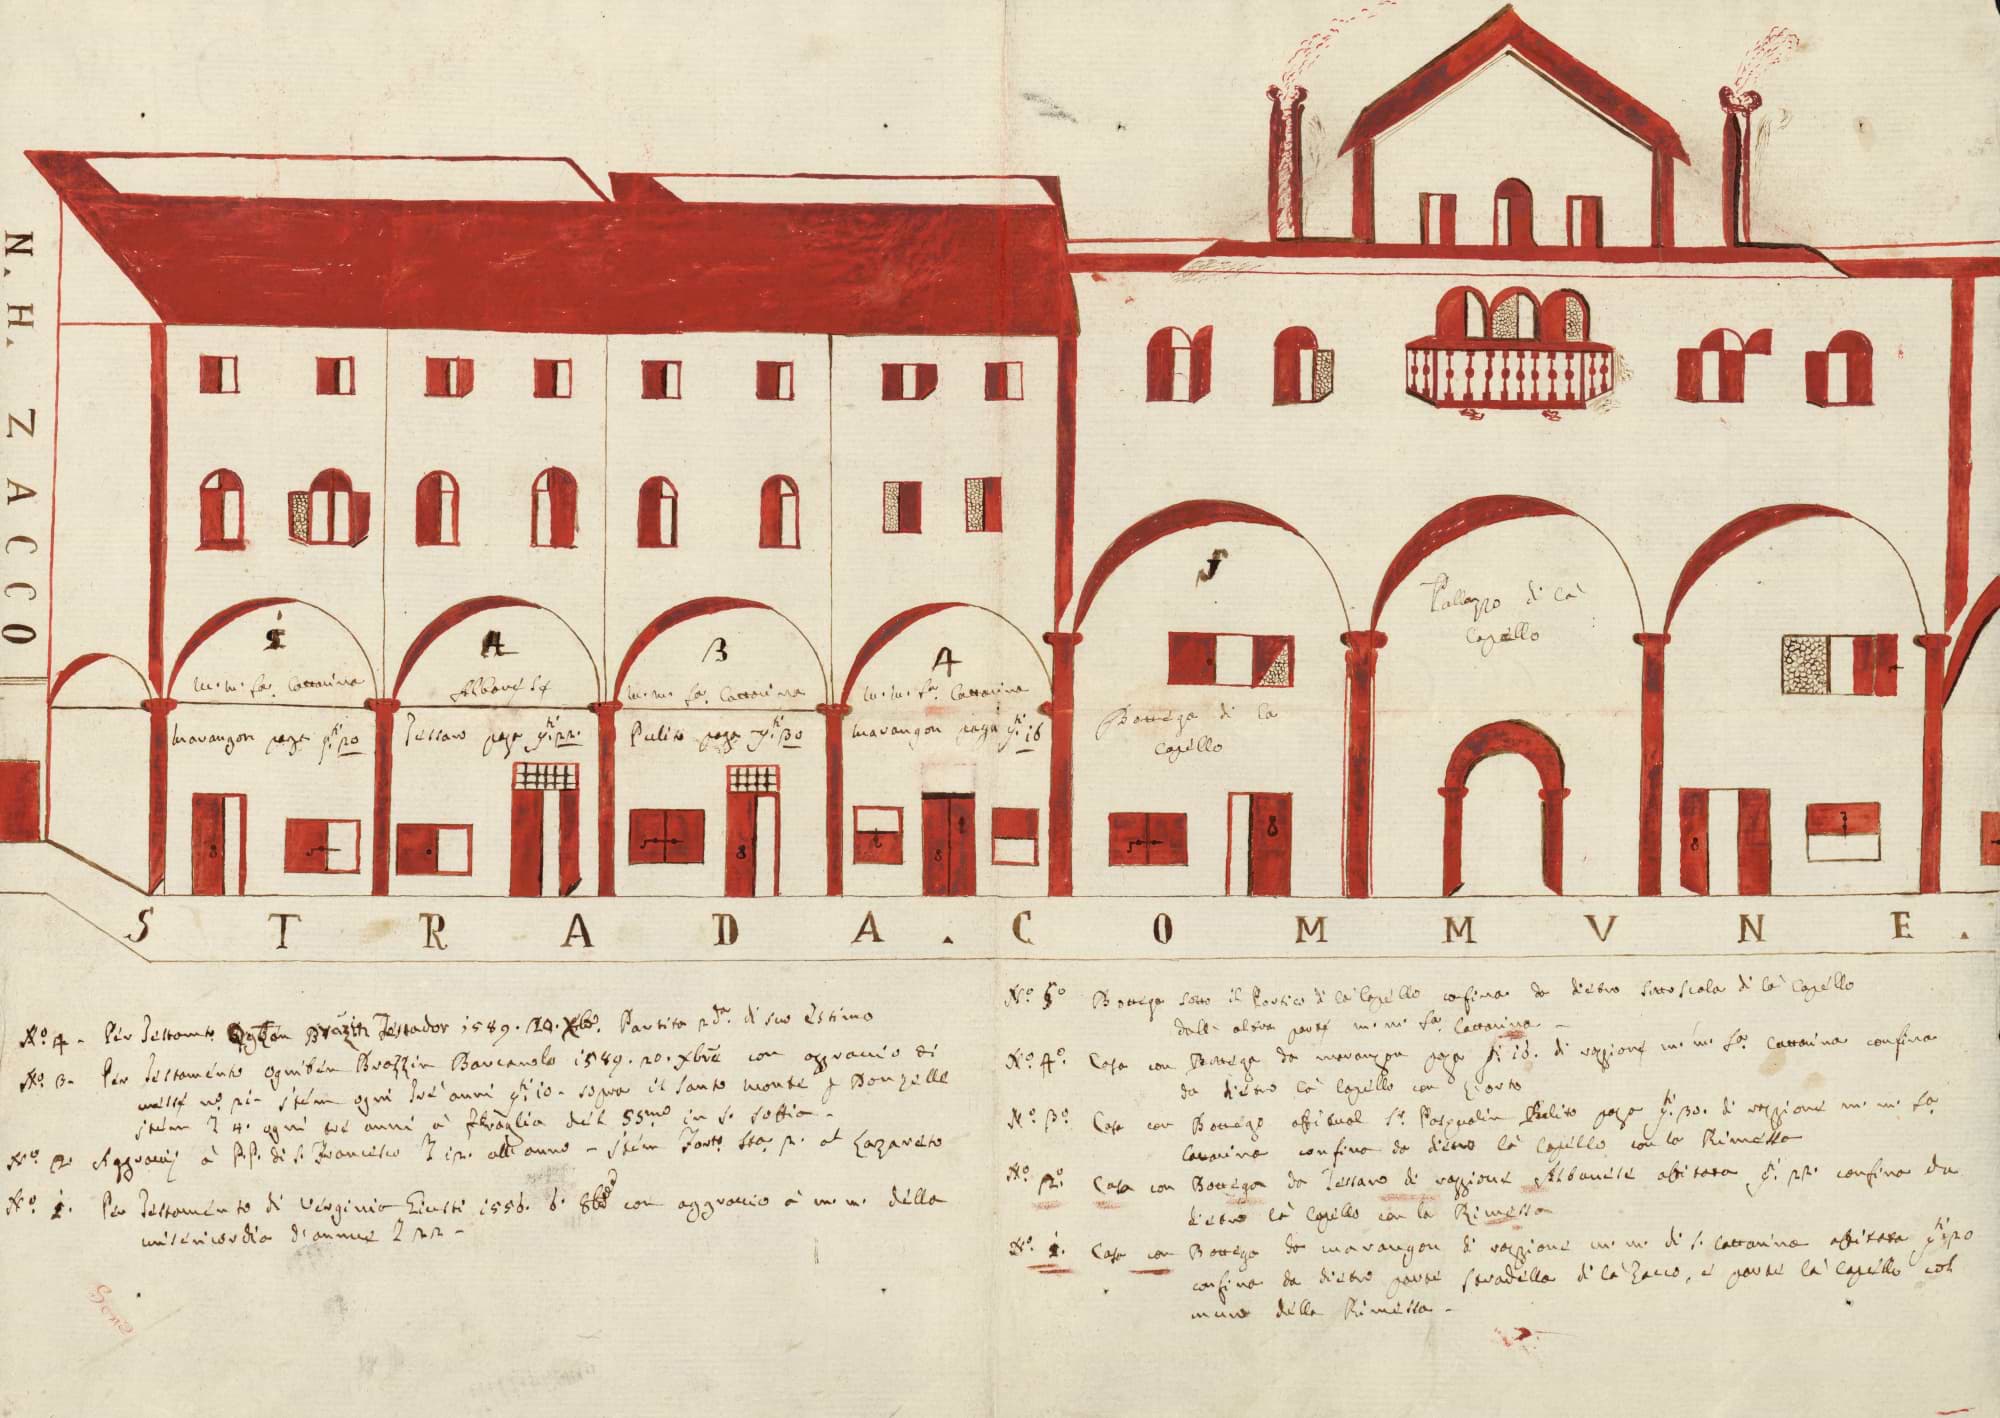 N. H. ZACCO
1
M. M. Sa. Cattarina
Marangon paga
2
Albanese
Tessaro paga
3
M. M. Sa. Cattarina
Pulito paga
4
M. M. Sa. Cattarina
Marangon paga
5
Bottega di cà
Capello
Pallazzo di cà
Capello
STRADA. COMMVNE.
No. 4 - Per Testamto Testador 1589. Partita di suo Estimo
No. 3 - Per Testamento Ogniben Brazzin Barcarolo 1589. 20. Xbre con aggravio di
messe no. ogni trè anni sopra il Santo Monte Donzelle
ogni trè anni à del SSmo in S. Soffia -
No. 2 Aggravij à PP. di S. Francesco all'anno - al Lazareto
No. 1. Per Testamento di Verginia Giusti 1556. 6. con aggravio à M. M. della
Misericordia d'annue
No. 5o Bottega sotto il Portico di cà Capello confina da dietro sottoscala di cà Capello
dall' altra parte M. M. Sa. Cattarina -
No. 4o. Casa con Bottega da marangon paga di raggione M. M. Sa. Cattarina confina
da dietro cà Capello con
No. 3o. Casa con Bottega affitual Sr. Pasqualin Pulito paga di raggione M. M. Sa.
Cattarina confina da dietro cà Capello con la Rimessa
No. 2o. Casa con Bottega da Tessaro di raggione Albanese affitata confina da
dietro cà Capello con la Rimessa
No. 1. Casa con Bottega da marangon di raggione M. M. di S. Cattarina affitata
confina da dietro parte stradella di cà Zacco, e parte cà Capello col
muro della Rimessa -